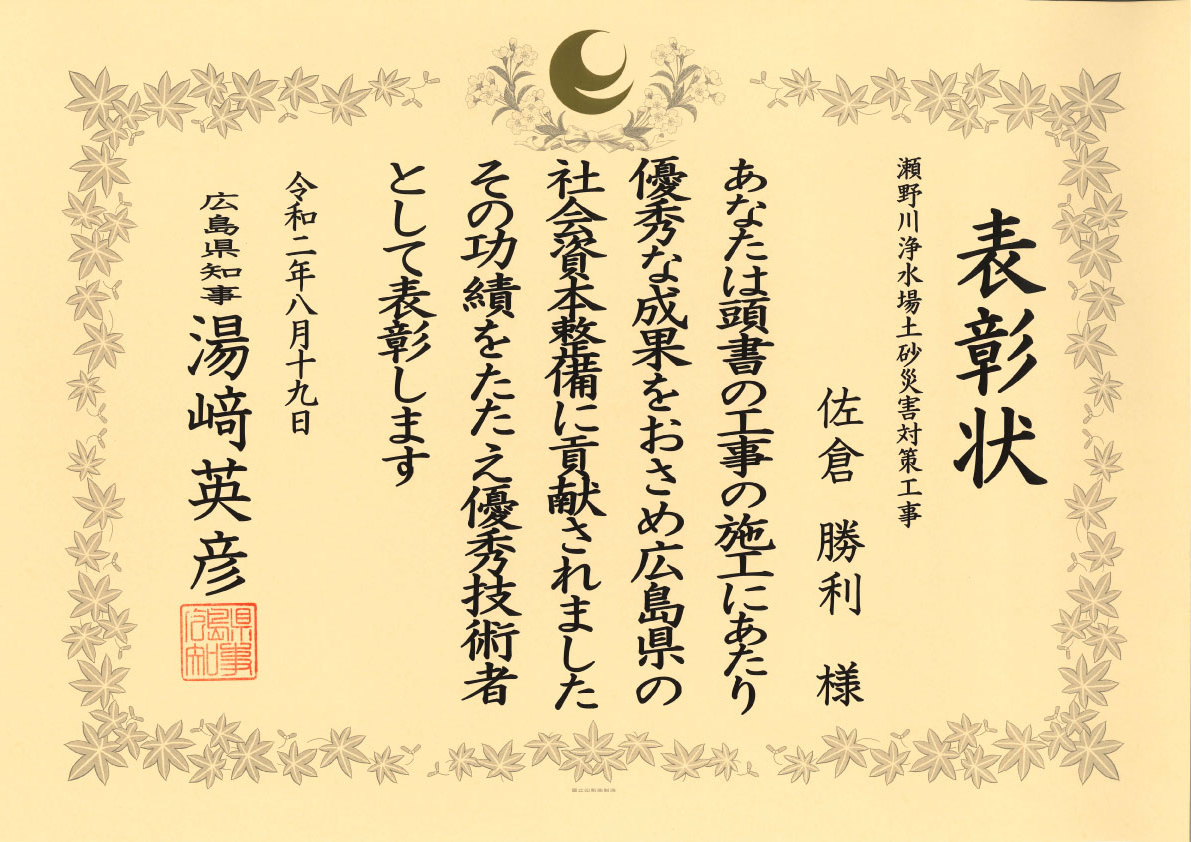 表彰状
瀬野川浄水場土砂災害対策工事
佐倉 勝利 様
あなたは頭書の工事の施工にあたり
優秀な成果をおさめ広島県の
社会資本整備に貢献されました
その功績をたたえ優秀技術者
として表彰します
令和二年八月十九日
広島県知事 湯﨑英彦